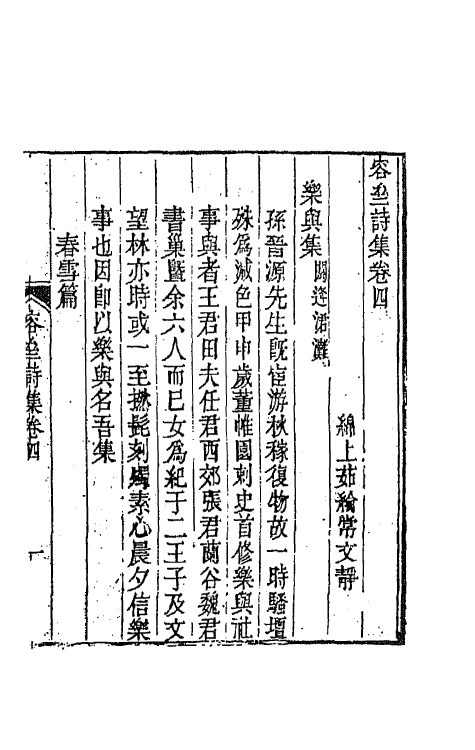 容坙詩集卷四
綿上茹綸常文靜
樂與集 閼逢涒灘
孫晉源先生既宦游秋稼復物故一時騷壇
殊為減色甲申歲董帷園刺史首修樂與社
事與者王君田夫任君西郊張君蘭谷魏君
書巢暨余六人而已女為紀于二王子及文
望林亦時或一至撚髭刻燭素心晨夕信樂
事也因即以樂與名吾集
春雪篇
容坙詩集卷四
一